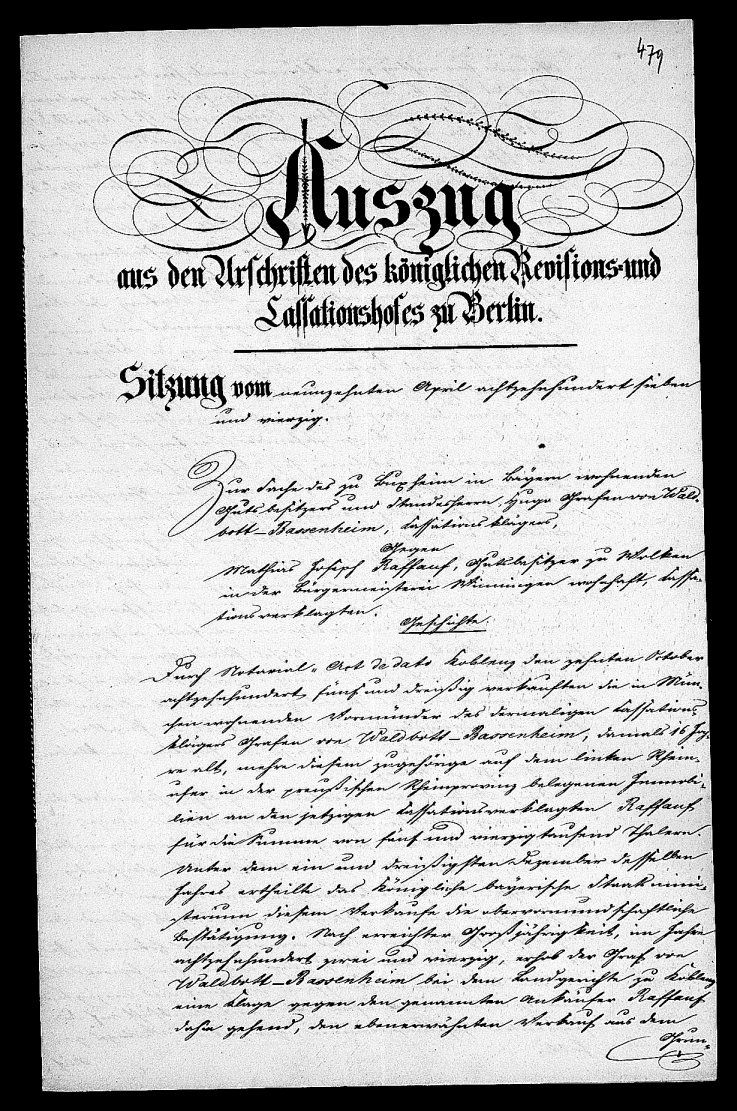 479
Auszug
aus den Urschriften des königlichen Revisions- und
Cassationshofes zu Berlin.
Sitzung vom neunzehnten April achtzehnhundert sieben
und vierzig.
Zur Sache des zu Buxheim in Bayern wohnenden
Gutsbesitzers und Standesherrn, Hugo Grafen von Wald-
bott-Bassenheim, Cassationsklägers,
Gegen
Mathias Joseph Raffauf, Gutsbesitzer zu Wolken
in der Bürgermeisterei Winningen wohnhaft, Cassa-
tionsverklagten.
Geschichte.
Durch Notarial-Act de dato Koblenz den zehnten October
achtzehnhundert fünf und dreißig verkauften die in Mün-
chen wohnenden Vormünder des dermaligen Cassations-
klägers Grafen von Waldbott-Bassenheim, damals 16 Jah-
re alt, mehre diesem zugehörige auf dem linken Rhein-
ufer in der preußischen Rheinprovinz belegenen Immobi-
lien an den jetzigen Cassationsverklagten Raffauf
für die Summe von fünf und vierzig tausend Thalern.
Unter dem ein und dreißigsten Dezember desselben
Jahres ertheilte das Königliche bayerische Staatsmini-
sterium diesem Verkaufe die obervormundschaftliche
Bestätigung. Nach erreichter Großjährigkeit, im Jahre
achtzehnhundert zwei und vierzig, erhob der Graf von
Waldbott-Bassenheim bei dem Landgerichte zu Koblenz
eine Klage gegen den genannten Ankäufer Raffauf
dahin gehend, den obenerwähnten Verkauf aus dem
Grun-